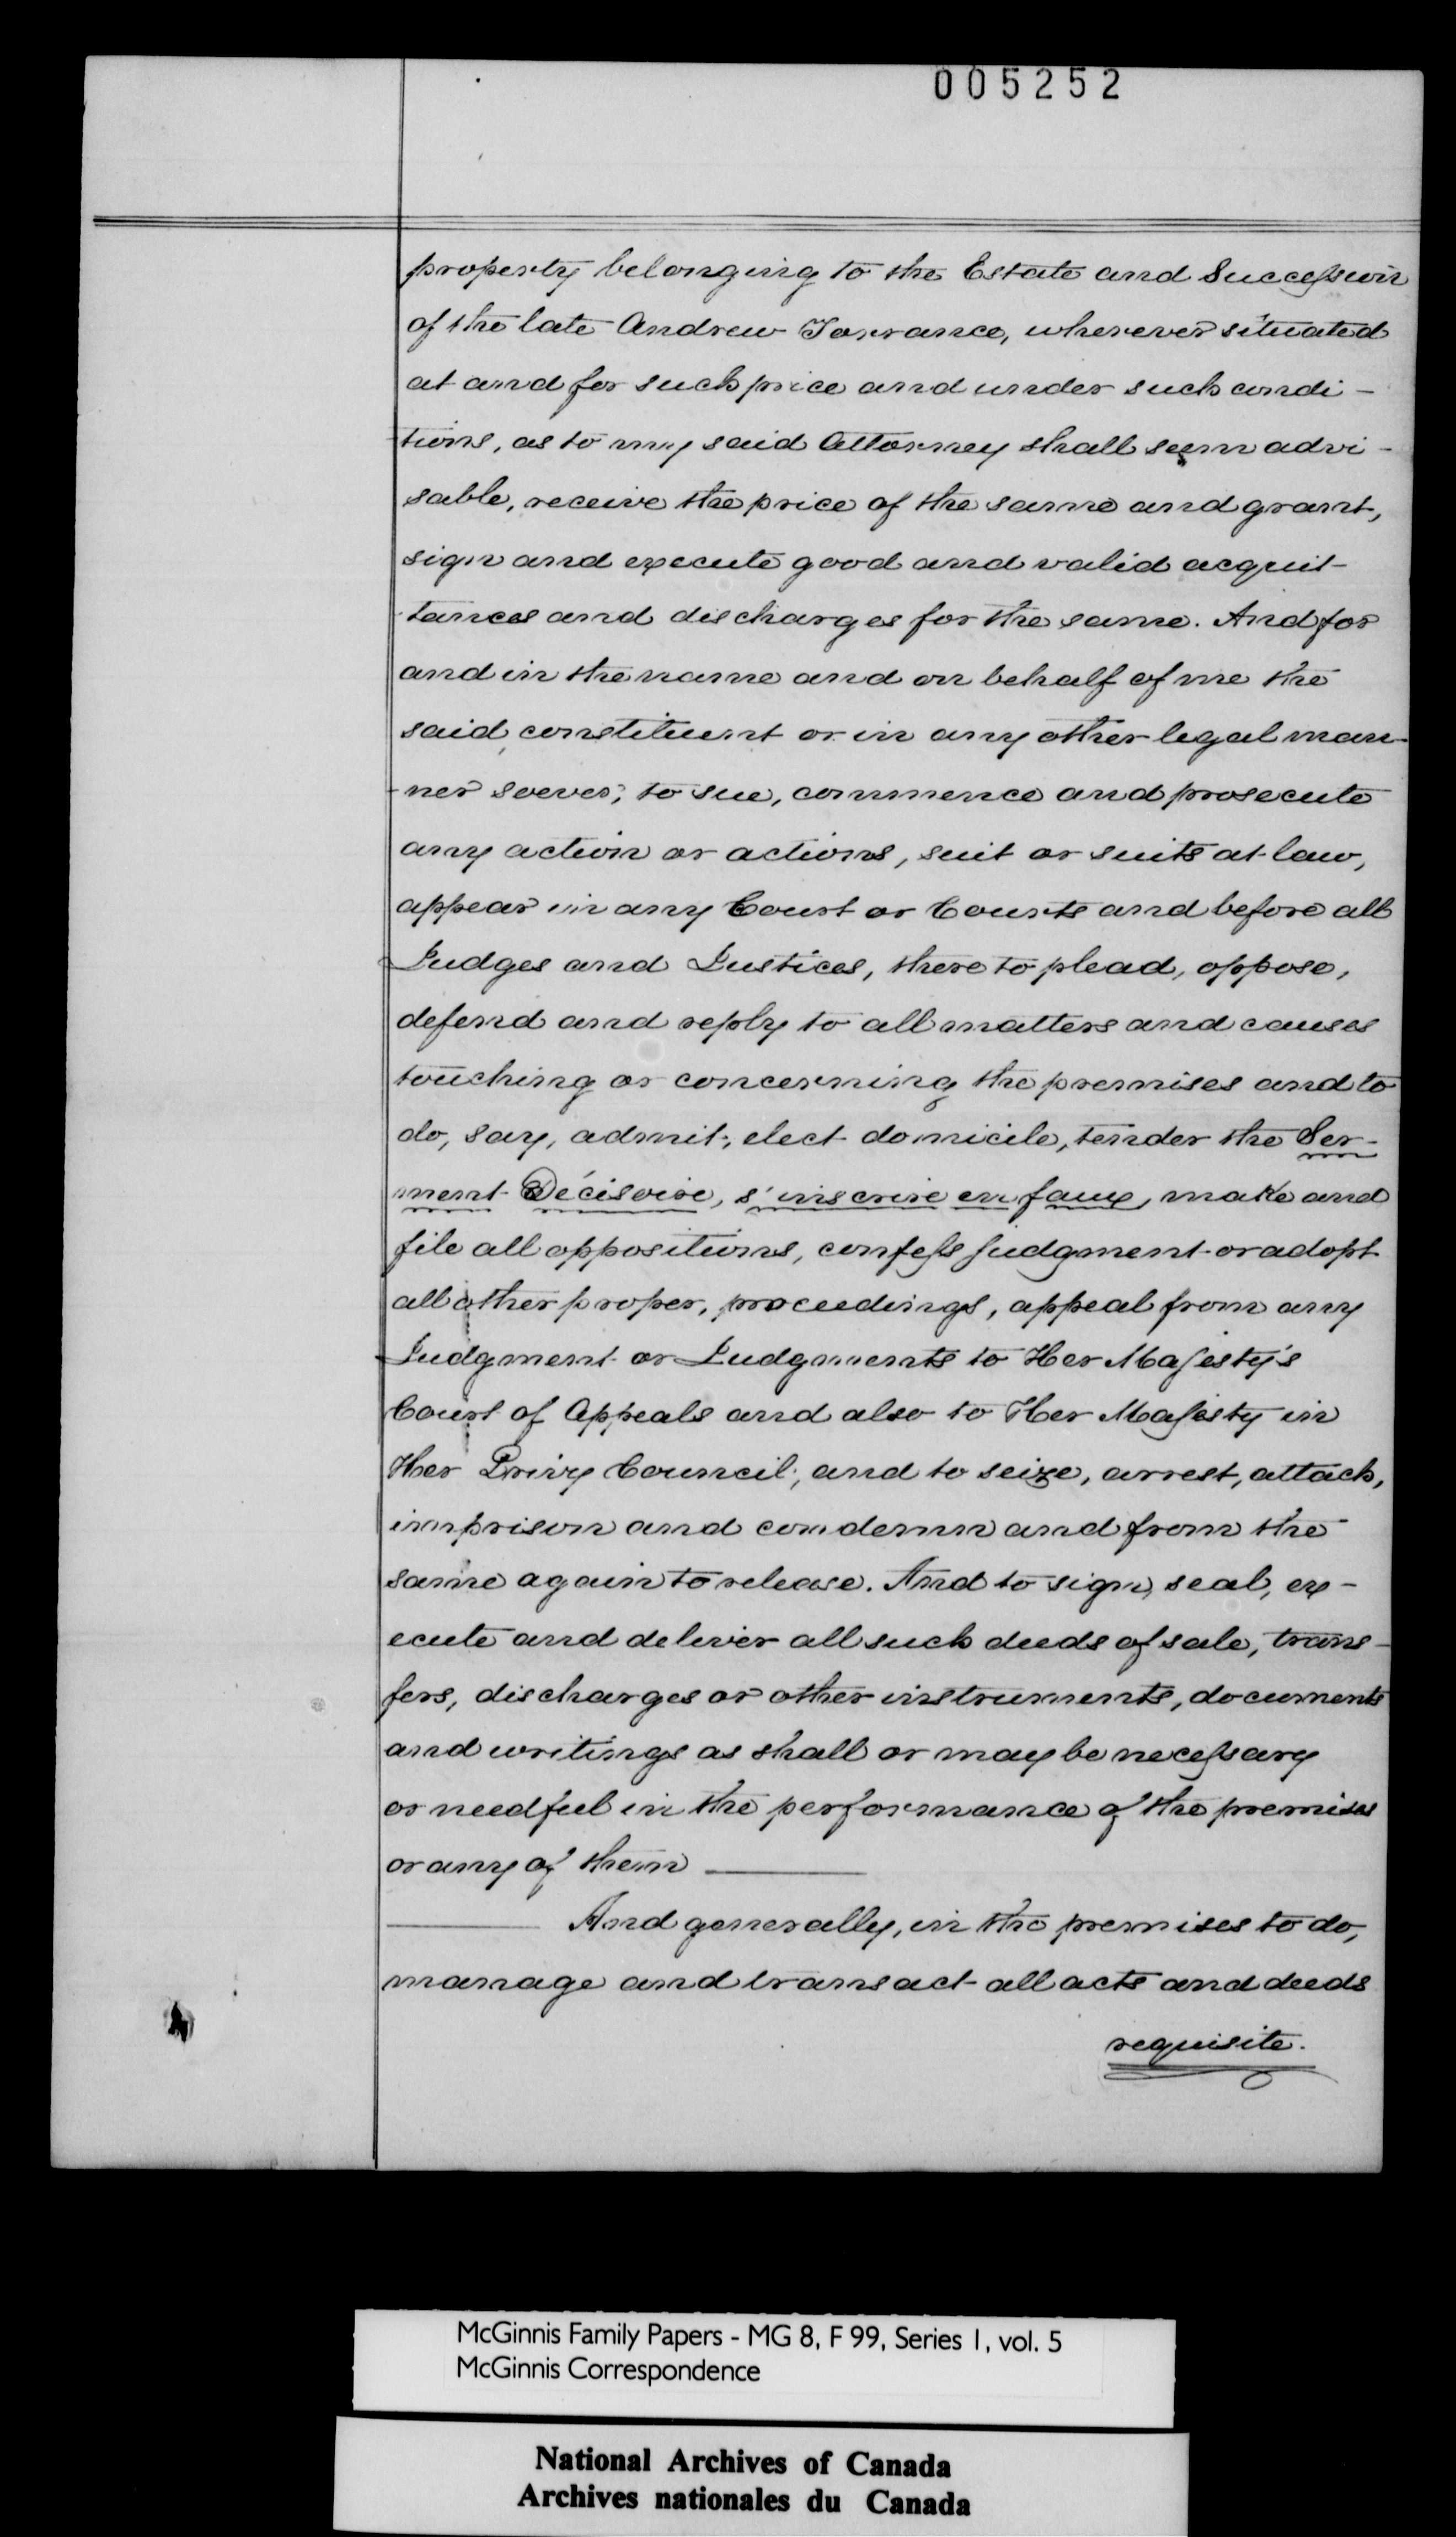 005252
property belonging to the Estate and Succession
of the late Andrew Torrance, wherever situated
at and for such price and under such condi-
tions, as to my said Attorney shall seem advi-
sable, receive the price of the same and grant,
sign and execute good and valid acquit-
tances and discharges for the same. And for
and in the name and on behalf of me the
said constituent or in any other legal man-
-ner soever; to sue, commence and prosecute
any action or actions, suit or suits at law,
appear in any Court or Courts and before all
Judges and Justices, there to plead, oppose,
defend and reply to all matters and causes
touching or concerning the premises and to
do, say, admit, elect domicile, tender the Ser-
ment Décisoire, s'inscrire en faux, make and
file all oppositions, confess judgment or adopt
all other proper, proceedings, appeal from any
Judgment or Judgments to Her Majesty's
Court of Appeals and also to Her Majesty in
Her Privy Council, and to seize, arrest, attach,
imprison and condemn and from the
same again to release. And to sign, seal, ex-
ecute and deliver all such deeds of sale, trans-
fers, discharges or other instruments, documents
and writings as shall or may be necessary
or needful in the performance of the premises
or any of them
And generally, in the premises to do,
manage and transact all acts and deeds
requisite.
McGinnis Family Papers - MG 8, F 99, Series 1, vol. 5
McGinnis Correspondence
National Archives of Canada
Archives nationales du Canada